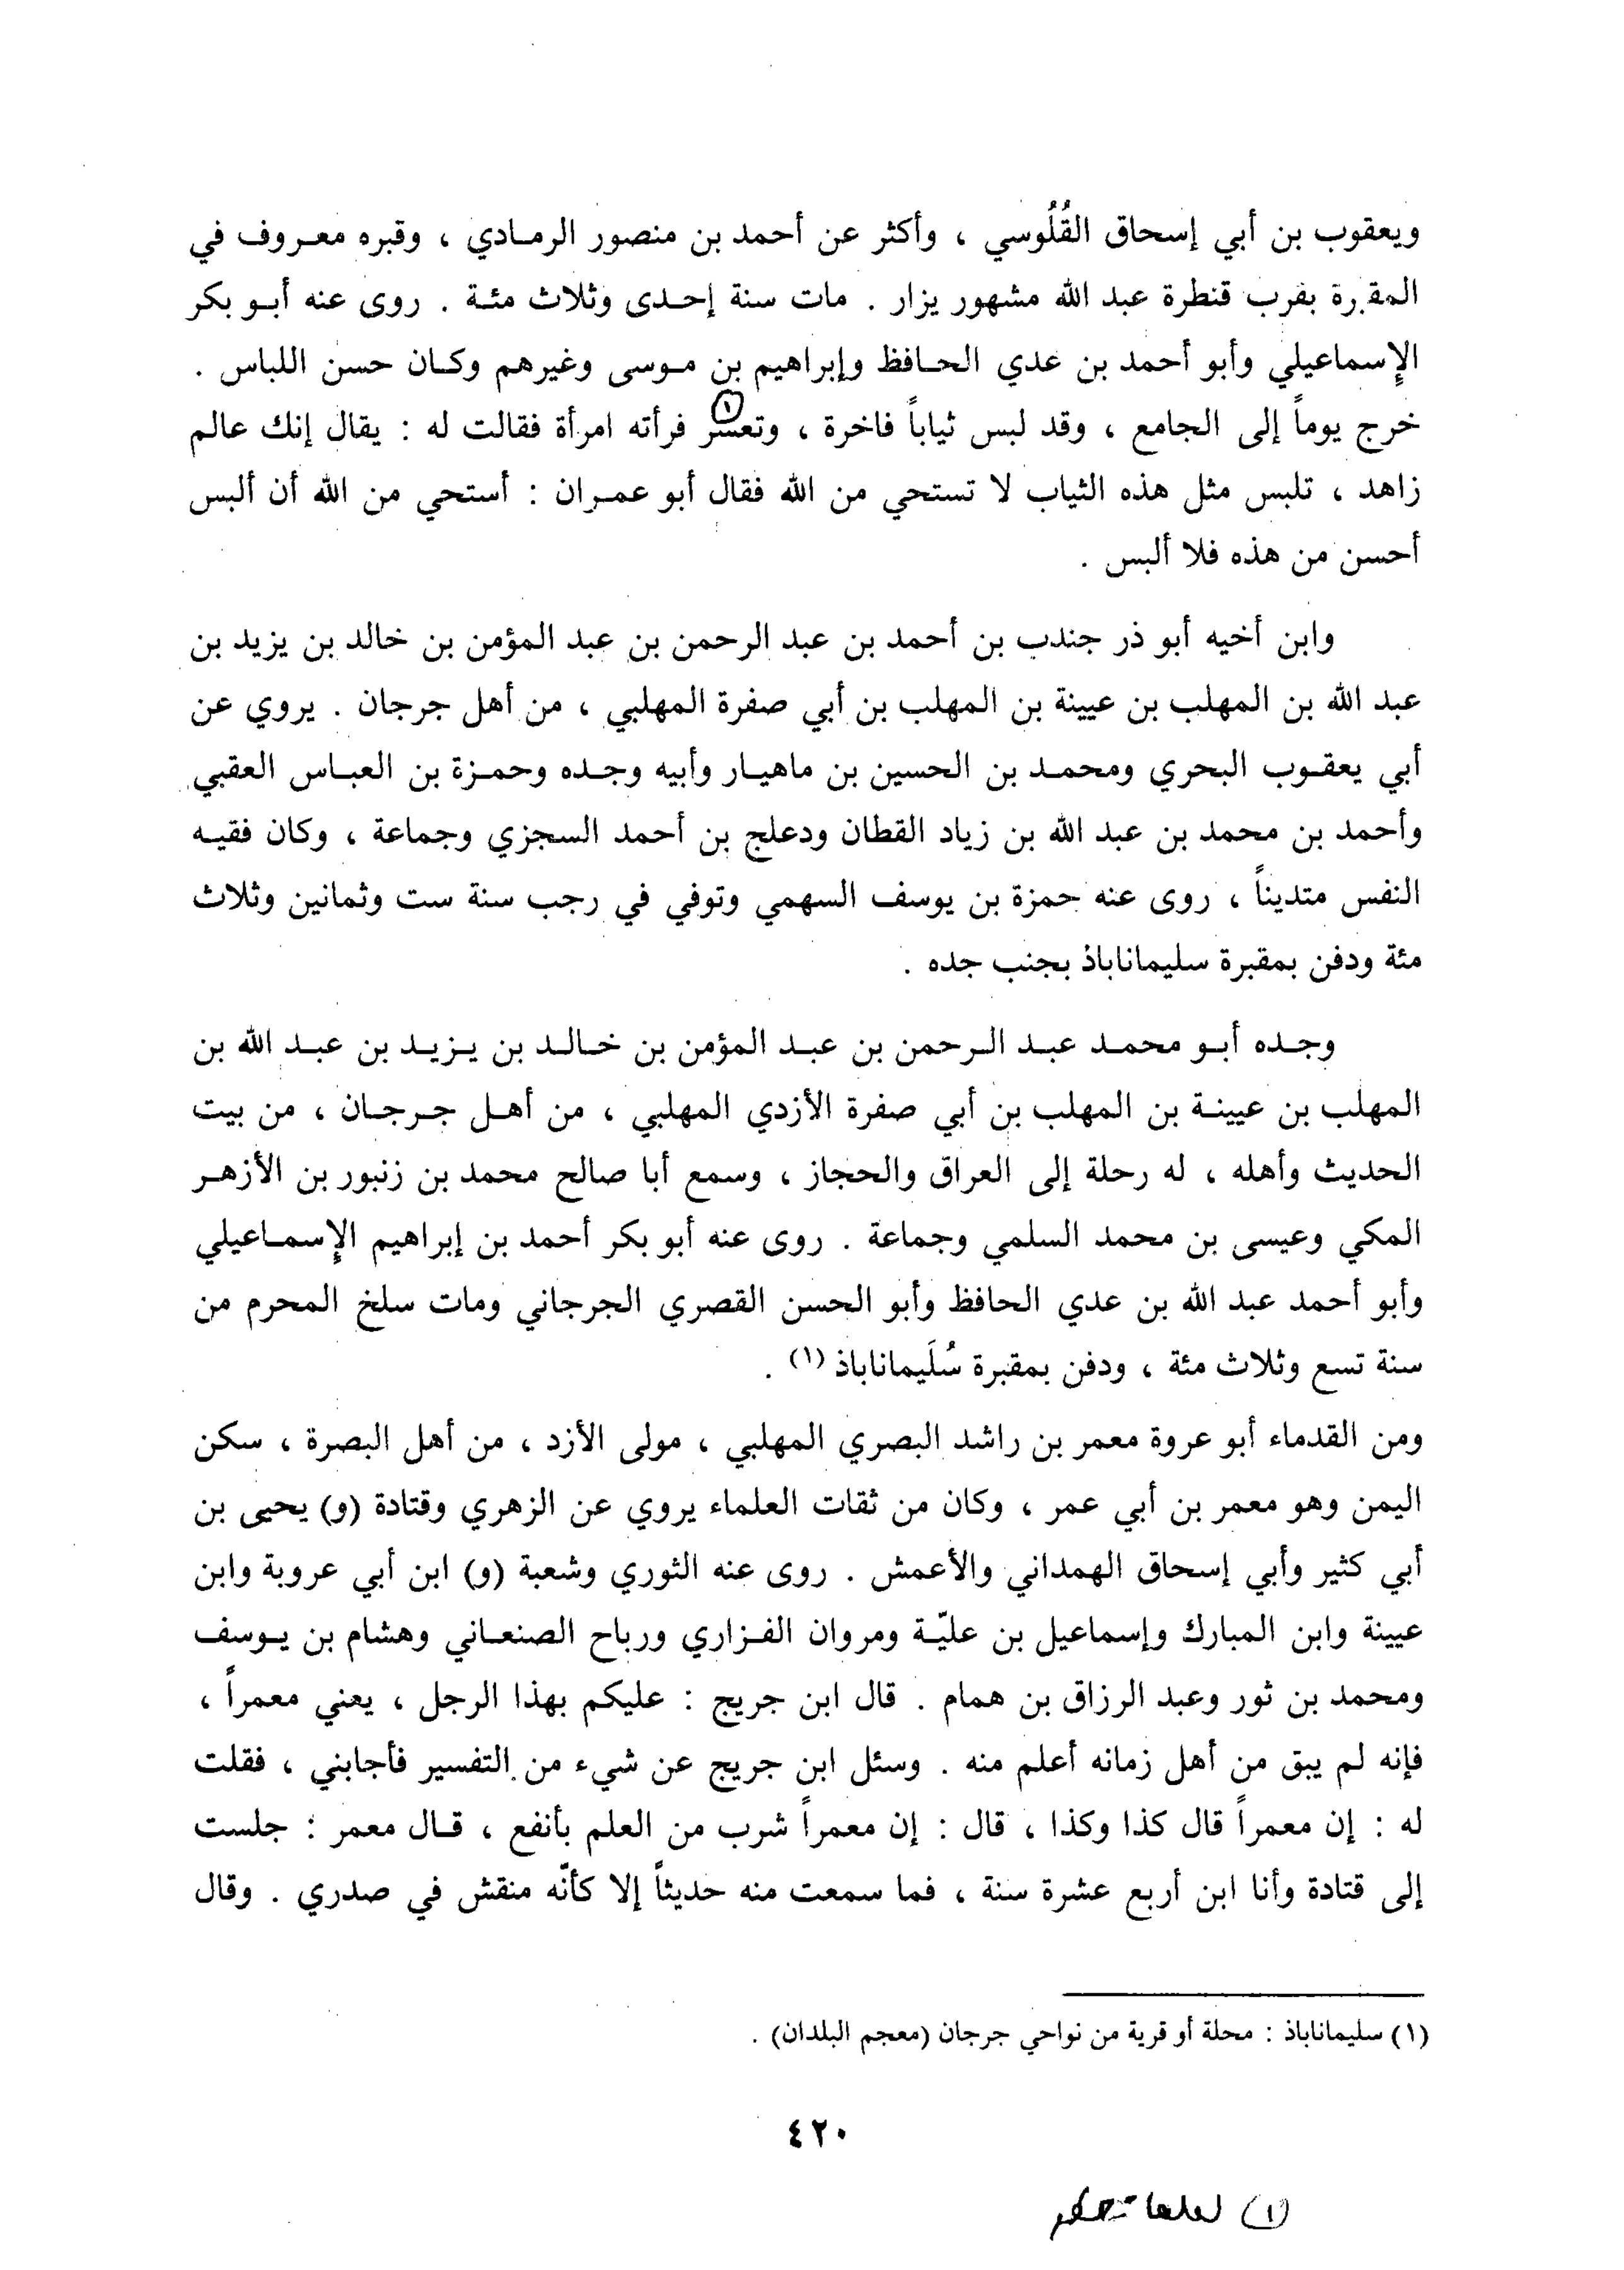 ويعقوب بن أبي إسحاق القُلُوسي ، وأكثر عن أحمد بن منصور الرمادي ، وقبره معروف في
المقبرة بقرب قنطرة عبد الله مشهور يزار . مات سنة إحدى وثلاث مئة . روى عنه أبو بكر
الإسماعيلي وأبو أحمد بن عدي الحافظ وإبراهيم بن موسى وغيرهم وكان حسن اللباس .
خرج يوماً إلى الجامع ، وقد لبس ثياباً فاخرة ، وتعسّر (١) فرأته امرأة فقالت له : يقال إنك عالم
زاهد ، تلبس مثل هذه الثياب لا تستحي من الله فقال أبو عمران : أستحي من الله أن ألبس
أحسن من هذه فلا ألبس .
وابن أخيه أبو ذر جندب بن أحمد بن عبد الرحمن بن عبد المؤمن بن خالد بن يزيد بن
عبد الله بن المهلب بن عيينة بن المهلب بن أبي صفرة المهلبي ، من أهل جرجان . يروي عن
أبي يعقوب البحري ومحمد بن الحسين بن ماهيار وأبيه وجده وحمزة بن العباس العقبي
وأحمد بن محمد بن عبد الله بن زياد القطان ودعلج بن أحمد السجزي وجماعة ، وكان فقيه
النفس متديناً ، روى عنه حمزة بن يوسف السهمي وتوفي في رجب سنة ست وثمانين وثلاث
مئة ودفن بمقبرة سليماناباذ بجنب جده .
وجده أبو محمد عبد الرحمن بن عبد المؤمن بن خالد بن يزيد بن عبد الله بن
المهلب بن عيينة بن المهلب بن أبي صفرة الأزدي المهلبي ، من أهل جرجان ، من بيت
الحديث وأهله ، له رحلة إلى العراق والحجاز ، وسمع أبا صالح محمد بن زنبور بن الأزهر
المكي وعيسى بن محمد السلمي وجماعة . روى عنه أبو بكر أحمد بن إبراهيم الإسماعيلي
وأبو أحمد عبد الله بن عدي الحافظ وأبو الحسن القصري الجرجاني ومات سلخ المحرم من
سنة تسع وثلاث مئة ، ودفن بمقبرة سُلَيماناباذ (١) .
ومن القدماء أبو عروة معمر بن راشد البصري المهلبي ، مولى الأزد ، من أهل البصرة ، سكن
اليمن وهو معمر بن أبي عمر ، وكان من ثقات العلماء يروي عن الزهري وقتادة (و) يحيى بن
أبي كثير وأبي إسحاق الهمداني والأعمش . روى عنه الثوري وشعبة (و) ابن أبي عروبة وابن
عيينة وابن المبارك وإسماعيل بن عليّة ومروان الفزاري ورباح الصنعاني وهشام بن يوسف
ومحمد بن ثور وعبد الرزاق بن همام . قال ابن جريج : عليكم بهذا الرجل ، يعني معمراً ،
فإنه لم يبق من أهل زمانه أعلم منه . وسئل ابن جريج عن شيء من التفسير فأجابني ، فقلت
له : إن معمراً قال كذا وكذا ، قال : إن معمراً شرب من العلم بأنفع ، قال معمر : جلست
إلى قتادة وأنا ابن أربع عشرة سنة ، فما سمعت منه حديثاً إلا كأنّه منقش في صدري . وقال
(١) سليماناباذ : محلة أو قرية من نواحي جرجان (معجم البلدان) .
٤٢٠
(١) لعلها